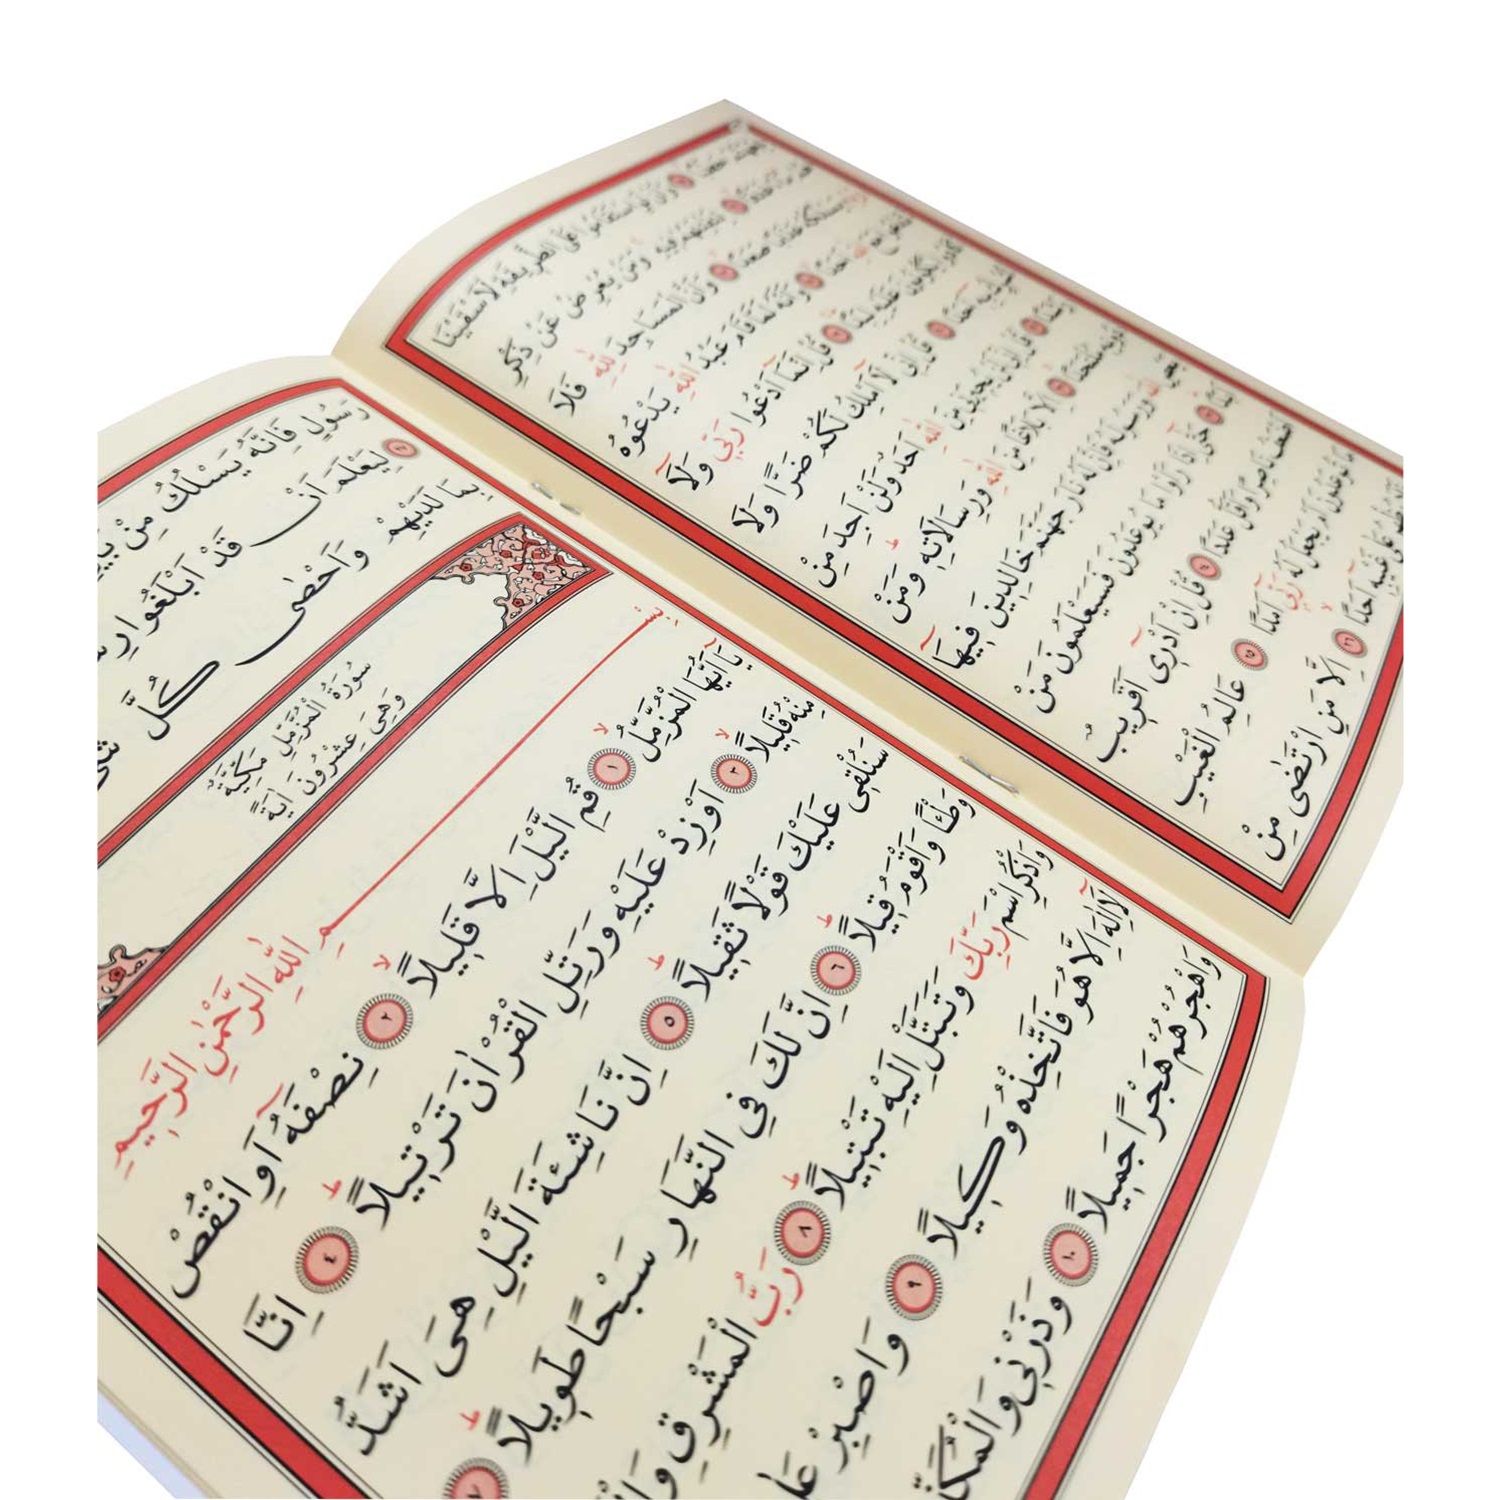 وَاَنْ لَوِ اسْتَقَامُوا عَلَى الطَّرِيقَةِ لَاَسْقَيْنَا
لِنَفْتِنَهُمْ فِيهِ وَمَنْ يُعْرِضْ عَنْ ذِكْرِ
يَسْلُكْهُ عَذَابًا صَعَدًا ١٧ وَاَنَّ الْمَسَاجِدَ لِلّٰهِ فَلَا
اَحَدًا ١٨ وَاَنَّهُ لَمَّا قَامَ عَبْدُ اللّٰهِ يَدْعُوهُ
كَادُوا يَكُونُونَ عَلَيْهِ لِبَدًا ١٩ قُلْ اِنَّمَا اَدْعُوا رَبِّي وَلَا
اَحَدًا ٢٠ قُلْ اِنِّي لَا اَمْلِكُ لَكُمْ ضَرًّا وَلَا
رَشَدًا ٢١ قُلْ اِنِّي لَنْ يُجِيرَنِي مِنَ اللّٰهِ اَحَدٌ وَلَنْ اَجِدَ مِنْ
دُونِهِ مُلْتَحَدًا ٢٢ اِلَّا بَلَاغًا مِنَ اللّٰهِ وَرِسَالَاتِهِ وَمَنْ
وَرَسُولَهُ فَاِنَّ لَهُ نَارَ جَهَنَّمَ خَالِدِينَ فِيهَا
اَبَدًا ٢٣ حَتّٰى اِذَا رَاَوْا مَا يُوعَدُونَ فَسَيَعْلَمُونَ مَنْ
اَضْعَفُ نَاصِرًا وَاَقَلُّ عَدَدًا ٢٤ قُلْ اِنْ اَدْرِي اَقَرِيبٌ
مَا تُوعَدُونَ اَمْ يَجْعَلُ لَهُ رَبِّي اَمَدًا ٢٥ عَالِمُ الْغَيْبِ
فَلَا يُظْهِرُ عَلٰى غَيْبِهِ اَحَدًا ٢٦ اِلَّا مَنِ ارْتَضٰى مِنْ
رَسُولٍ فَاِنَّهُ يَسْلُكُ مِنْ
٢٧ لِيَعْلَمَ اَنْ قَدْ اَبْلَغُوا
بِمَا لَدَيْهِمْ وَاَحْصٰى كُلَّ
سُورَةُ الْمُزَّمِّلِ مَكِّيَّةٌ
وَهِيَ عِشْرُونَ اٰيَةً
بِسْمِ اللّٰهِ الرَّحْمٰنِ الرَّحِيمِ
يَا اَيُّهَا الْمُزَّمِّلُ ١ قُمِ الَّيْلَ اِلَّا قَلِيلًا ٢ نِصْفَهُ اَوِ انْقُصْ
مِنْهُ قَلِيلًا ٣ اَوْ زِدْ عَلَيْهِ وَرَتِّلِ الْقُرْاٰنَ تَرْتِيلًا ٤ اِنَّا
سَنُلْقِي عَلَيْكَ قَوْلًا ثَقِيلًا ٥ اِنَّ نَاشِئَةَ الَّيْلِ هِيَ اَشَدُّ
وَطْئًا وَاَقْوَمُ قِيلًا ٦ اِنَّ لَكَ فِي النَّهَارِ سَبْحًا طَوِيلًا ٧
وَاذْكُرِ اسْمَ رَبِّكَ وَتَبَتَّلْ اِلَيْهِ تَبْتِيلًا ٨ رَبُّ الْمَشْرِقِ
لَا اِلٰهَ اِلَّا هُوَ فَاتَّخِذْهُ وَكِيلًا ٩ وَاصْبِرْ
وَاهْجُرْهُمْ هَجْرًا جَمِيلًا ١٠ وَذَرْنِي